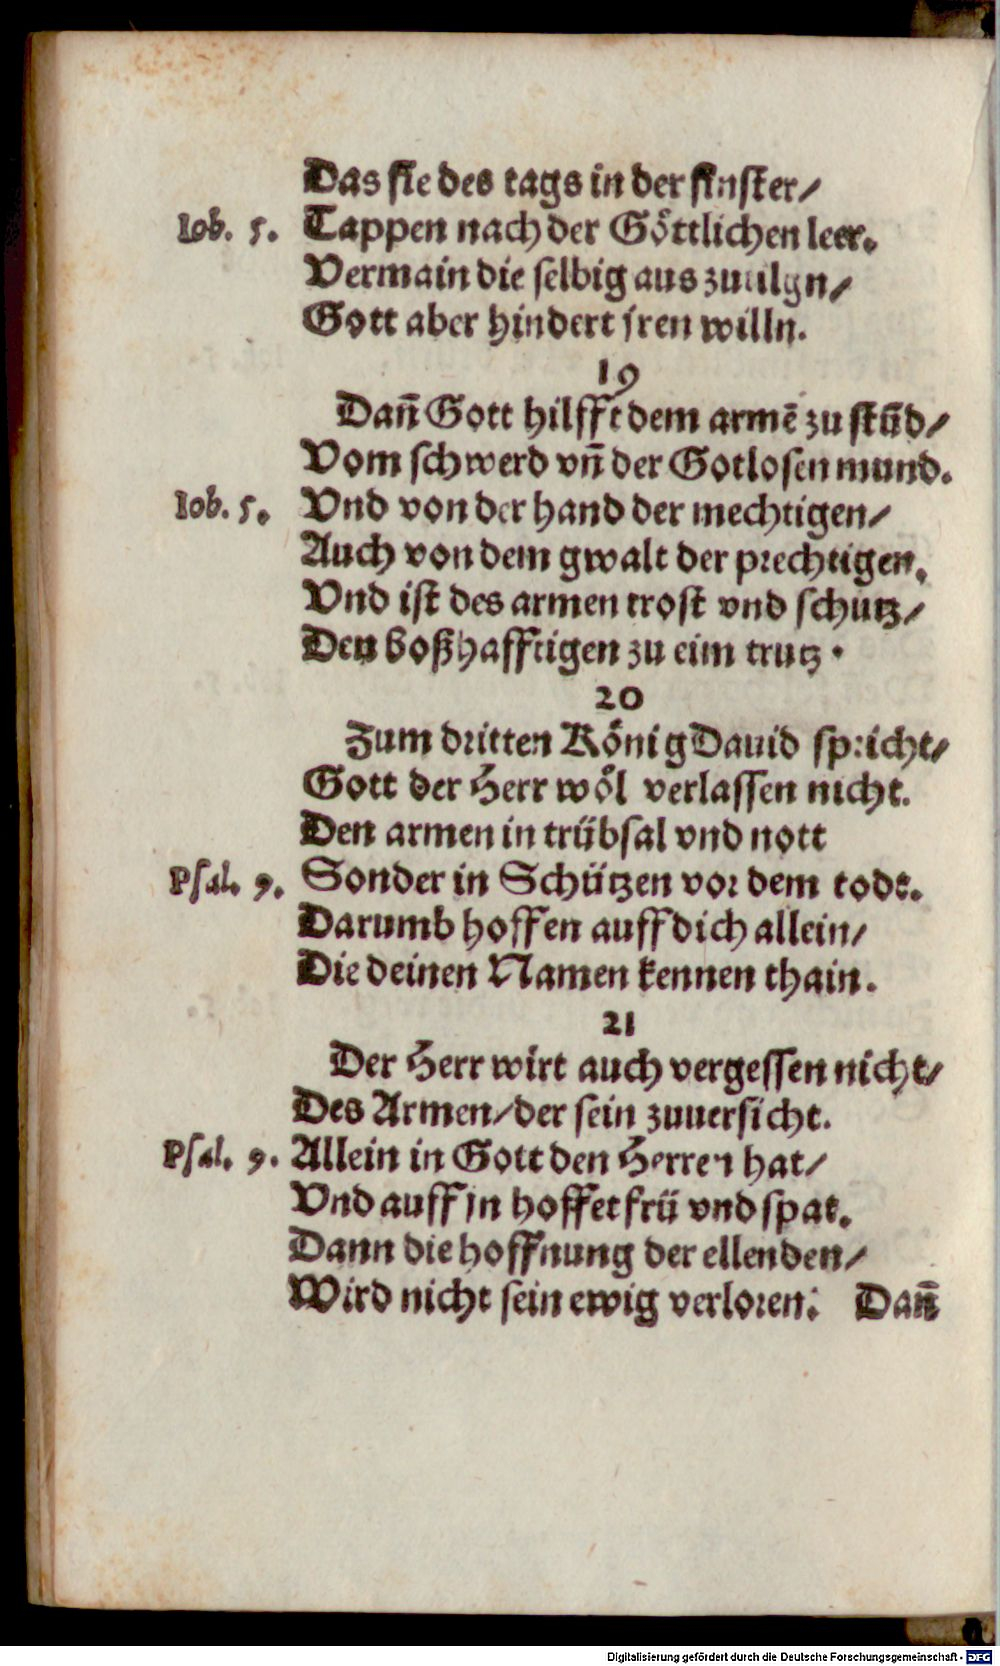 Das sie des tags in der finster/
Iob. 5. Tappen nach der Göttlichen leer.
Vermain die selbig aus zuuilgn/
Gott aber hindert iren willn.
19
Dañ Gott hilfft dem armē zu stūd/
Vom schwerd vñ der Gotlosen mund.
Iob. 5. Vnd von der hand der mechtigen/
Auch von dem gwalt der prechtigen.
Vnd ist des armen trost vnd schutz/
Den boßhafftigen zu eim trutz.
20
Zum dritten König Dauid spricht/
Gott der Herr wöl verlassen nicht.
Den armen in trübsal vnd nott
Psal. 9. Sonder in Schützen vor dem todt.
Darumb hoffen auff dich allein/
Die deinen Namen kennen thain.
21
Der Herr wirt auch vergessen nicht/
Des Armen/der sein zuuersicht.
Psal. 9. Allein in Gott den Herren hat/
Vnd auff jn hoffet frü vnd spat.
Dann die hoffnung der ellenden/
Wird nicht sein ewig verloren: Dañ
Digitalisierung gefördert durch die Deutsche Forschungsgemeinschaft - DFG